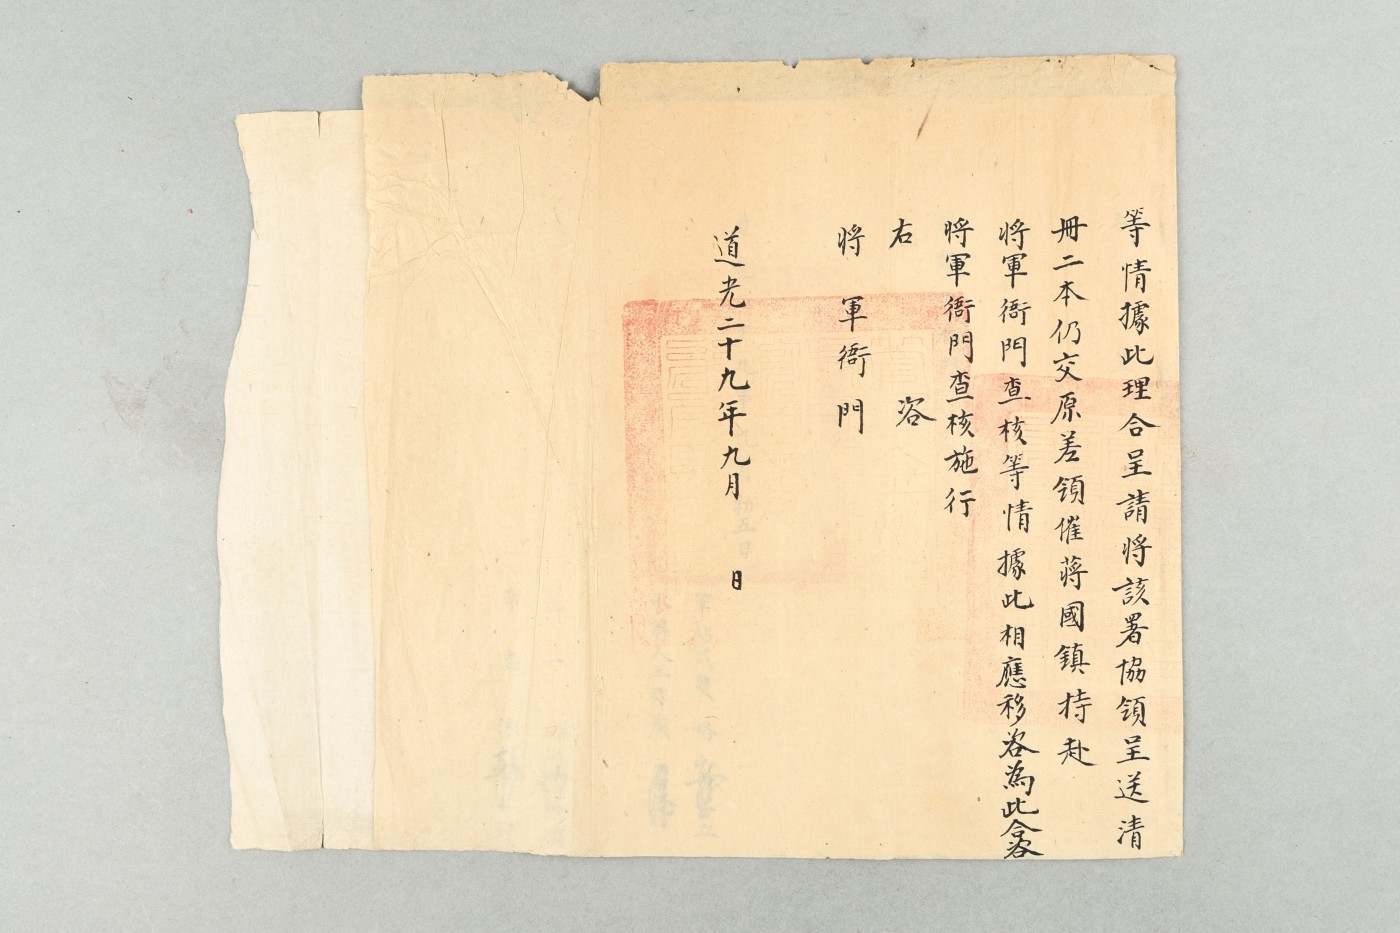 等情據此理合呈請将該署協領呈送清
冊二本仍交原差領催蔣國鎮持赴
将軍衙門查核等情據此相應移咨為此合咨
将軍衙門查核施行
右咨
将軍衙門
道光二十九年九月 日
初五日